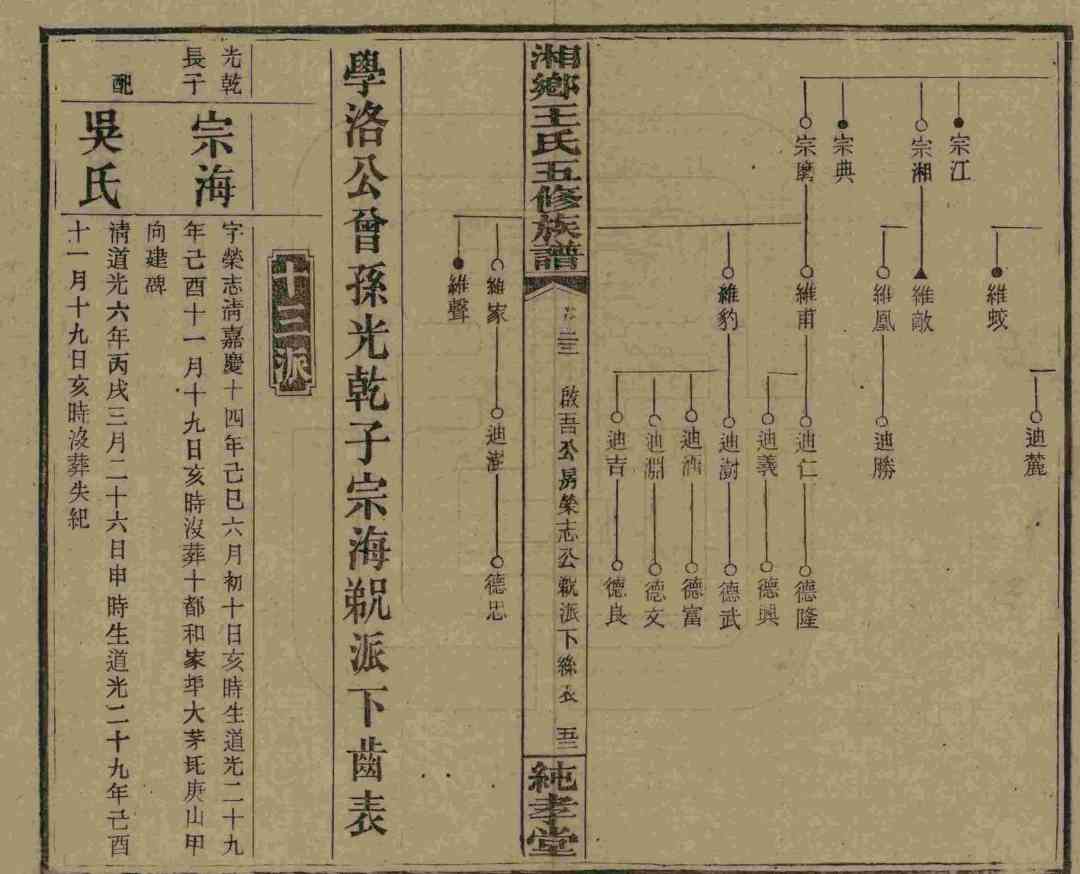 宗江
宗湘
宗典
宗鷹
維蛟
維敵
維鳳
維甫
維豹
迪麓
迪勝
迪仁
迪義
迪澍
迪酒
迪淵
迪吉
德隆
德興
德武
德富
德文
德良
湘鄉王氏五修族譜
啟吾公房榮志公派下絲表
五三
純孝堂
維家
維聲
迪澎
德忠
學洛公曾孫光乾子宗海派下齒表
十三派
光乾
長子
宗海
字榮志清嘉慶十四年己巳六月初十日亥時生道光二十九
年己酉十一月十九日亥時沒葬十都和家大茅坵庚山甲
向建碑
配
吳氏
清道光六年丙戌三月二十六日申時生道光二十九年己酉
十一月十九日亥時沒葬失紀